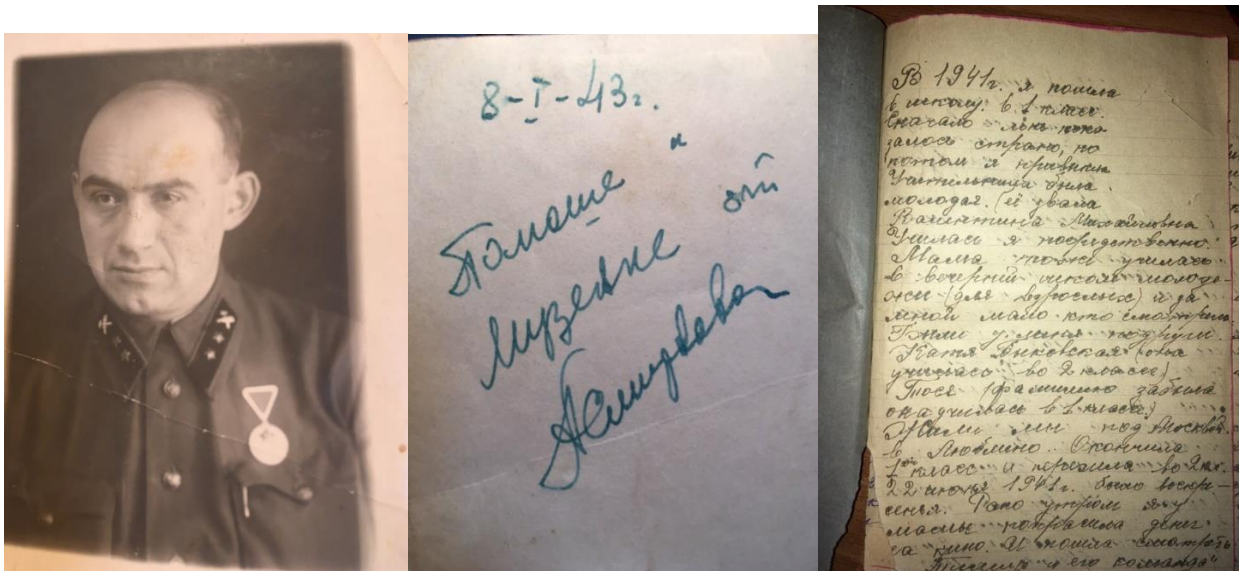 8-I-43г.
Томаше и
Музеньке от
В 1941г. я пошла
в школу. в 1 класс.
Сначало мне пока
залось страно, но
потом я привыкла
Учительница была
молодая. (её звала
Валентина Михайловна
Училась я посредственно.
Мама тоже училась
в вечерней школе молоде-
жи (для взрослых) и за
мной мало кто смотрел
Были у меня подруги.
Катя Быковская (она
училась во 2 классе)
Тося (фамилию забыла
она училась в 1 классе)
Жили мы под Москвой.
в Люблино. Окончила
1ый класс и перешла во 2 кл.
22 июня 1941г. было воскре-
сенья. Рано утром я у
мамы попросила денег
на кино. И пошла смотреть
"Тимур и его команда"